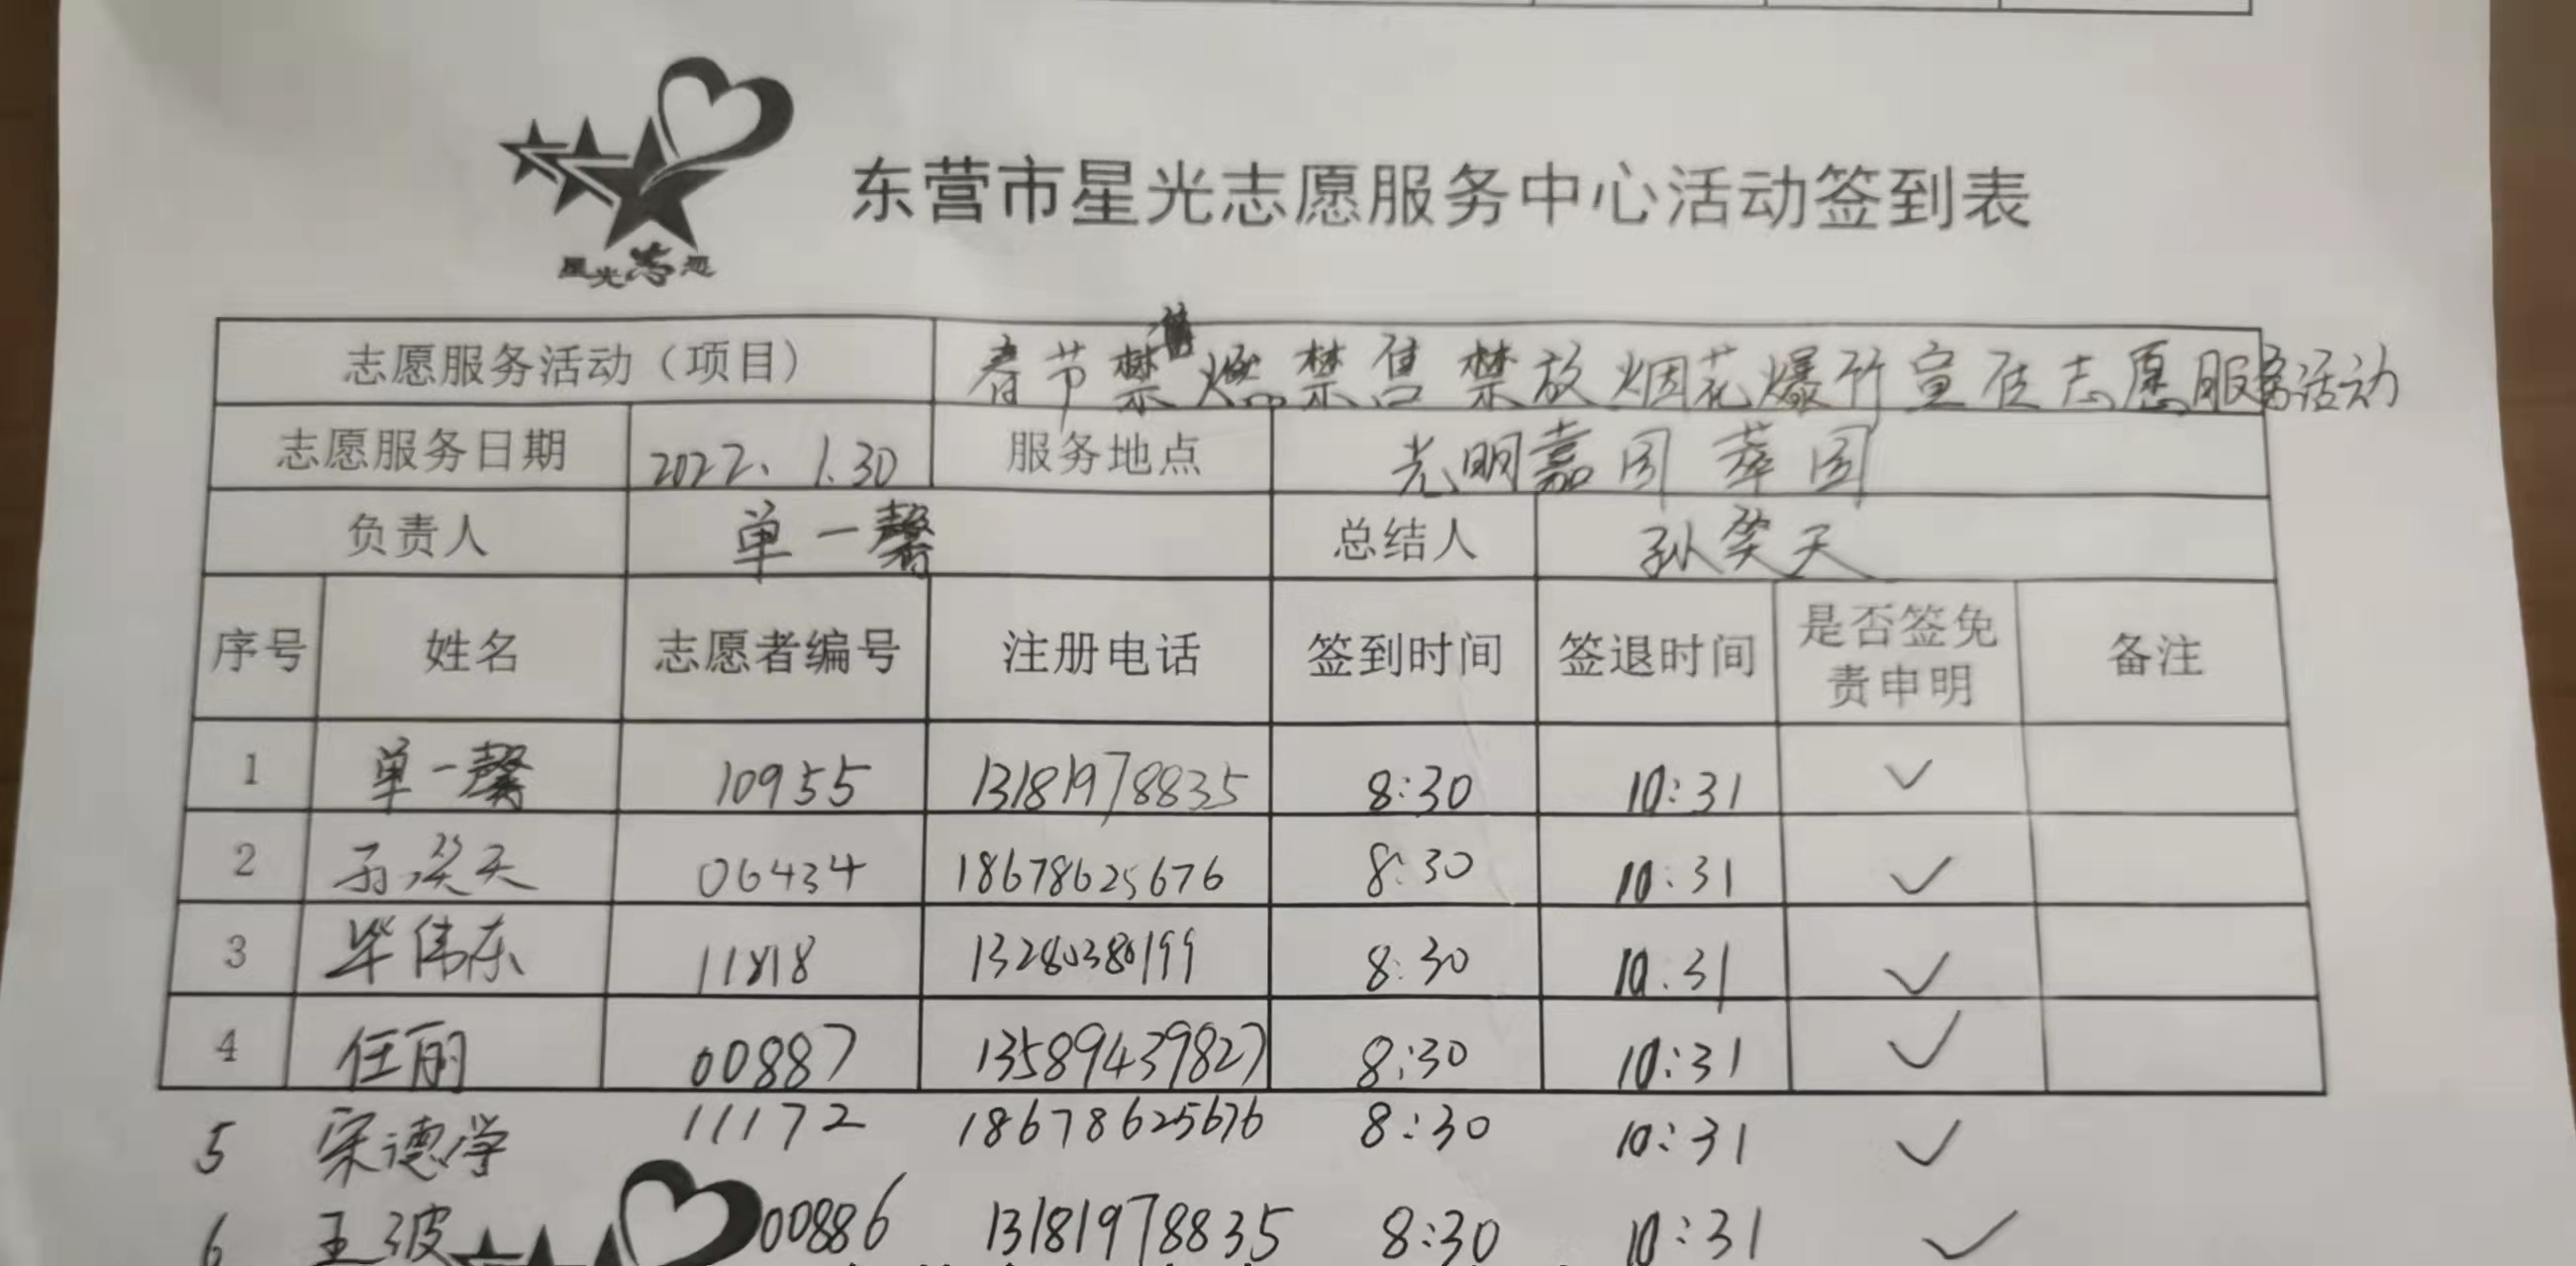 东营市星光志愿服务中心活动签到表
星光志愿
志愿服务活动（项目） 春节禁燃禁售禁放烟花爆竹宣传志愿服务活动
志愿服务日期 2022、1.30 服务地点 光明嘉园 萃园
负责人 单一馨 总结人 孙笑天
序号 姓名 志愿者编号 注册电话 签到时间 签退时间 是否签免责申明 备注
1 单一馨 10955 13181978835 8:30 10:31 ✓
2 孙笑天 06434 18678625676 8:30 10:31 ✓
3 毕伟东 11818 13280380199 8:30 10:31 ✓
4 任丽 00887 13589439827 8:30 10:31 ✓
5 宋德学 11172 18678625676 8:30 10:31 ✓
6 王波 00886 13181978835 8:30 10:31 ✓